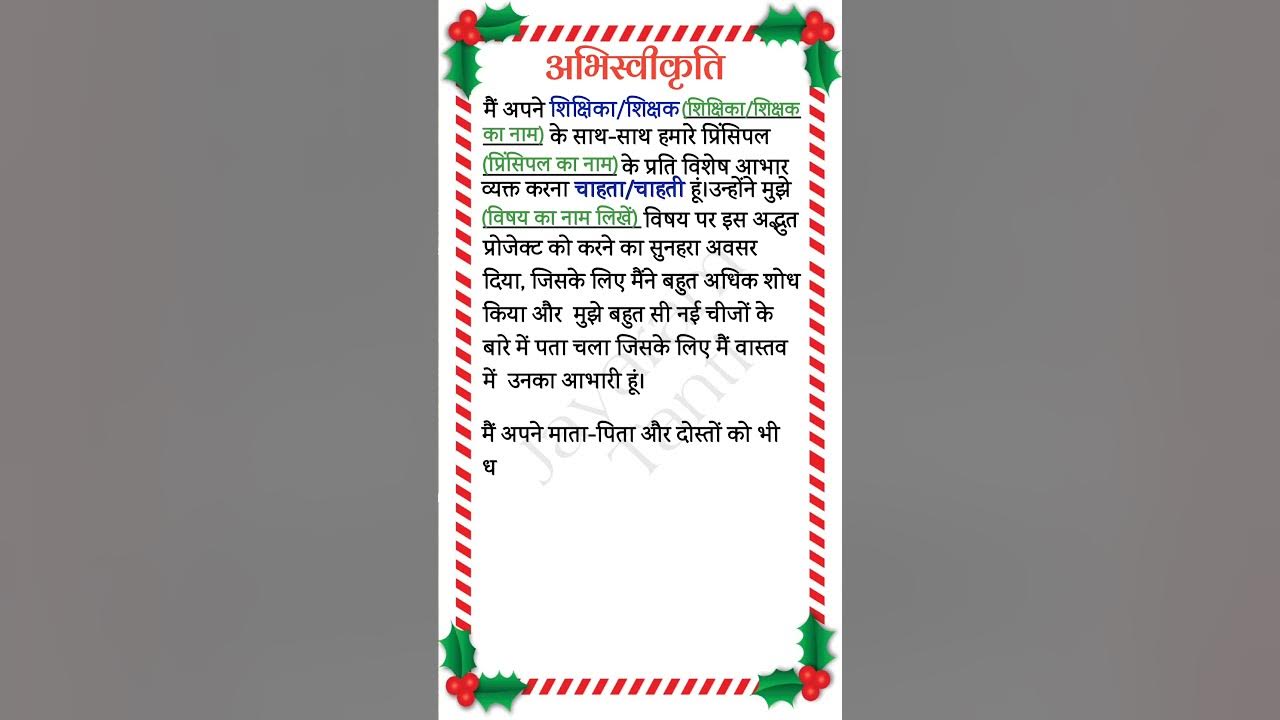 अभिस्वीकृति
मैं अपने शिक्षिका/शिक्षक(शिक्षिका/शिक्षक
का नाम) के साथ-साथ हमारे प्रिंसिपल
(प्रिंसिपल का नाम) के प्रति विशेष आभार
व्यक्त करना चाहता/चाहती हूं।उन्होंने मुझे
(विषय का नाम लिखें) विषय पर इस अद्भुत
प्रोजेक्ट को करने का सुनहरा अवसर
दिया, जिसके लिए मैंने बहुत अधिक शोध
किया और मुझे बहुत सी नई चीजों के
बारे में पता चला जिसके लिए मैं वास्तव
में उनका आभारी हूं।
मैं अपने माता-पिता और दोस्तों को भी
ध
Jayaram
Tanti